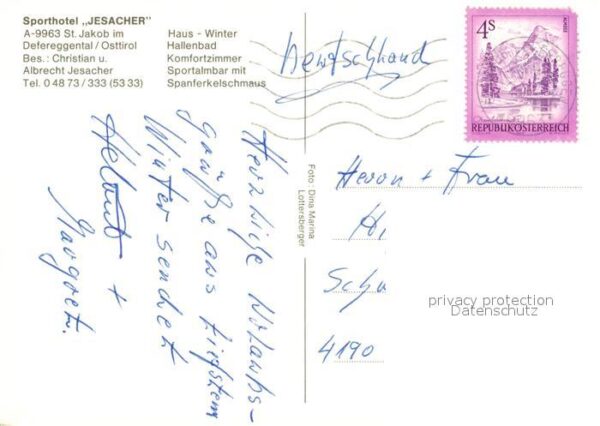 Sporthotel „JESACHER"
A-9963 St. Jakob im
Defereggental / Osttirol
Bes.: Christian u.
Albrecht Jesacher
Tel. 0 48 73 / 333 (53 33)
Haus - Winter
Hallenbad
Komfortzimmer
Sportalmbar mit
Spanferkelschmaus
Deutschland
4s
ALMSEE
REPUBLIK ÖSTERREICH
Herzliche Urlaubs-
grüße aus tiefstem
Winter sendet
Helmut +
Margret.
Foto: Dina Marina
Lottersberger
Herrn + Frau
H
Schu
4190
privacy protection
Datenschutz